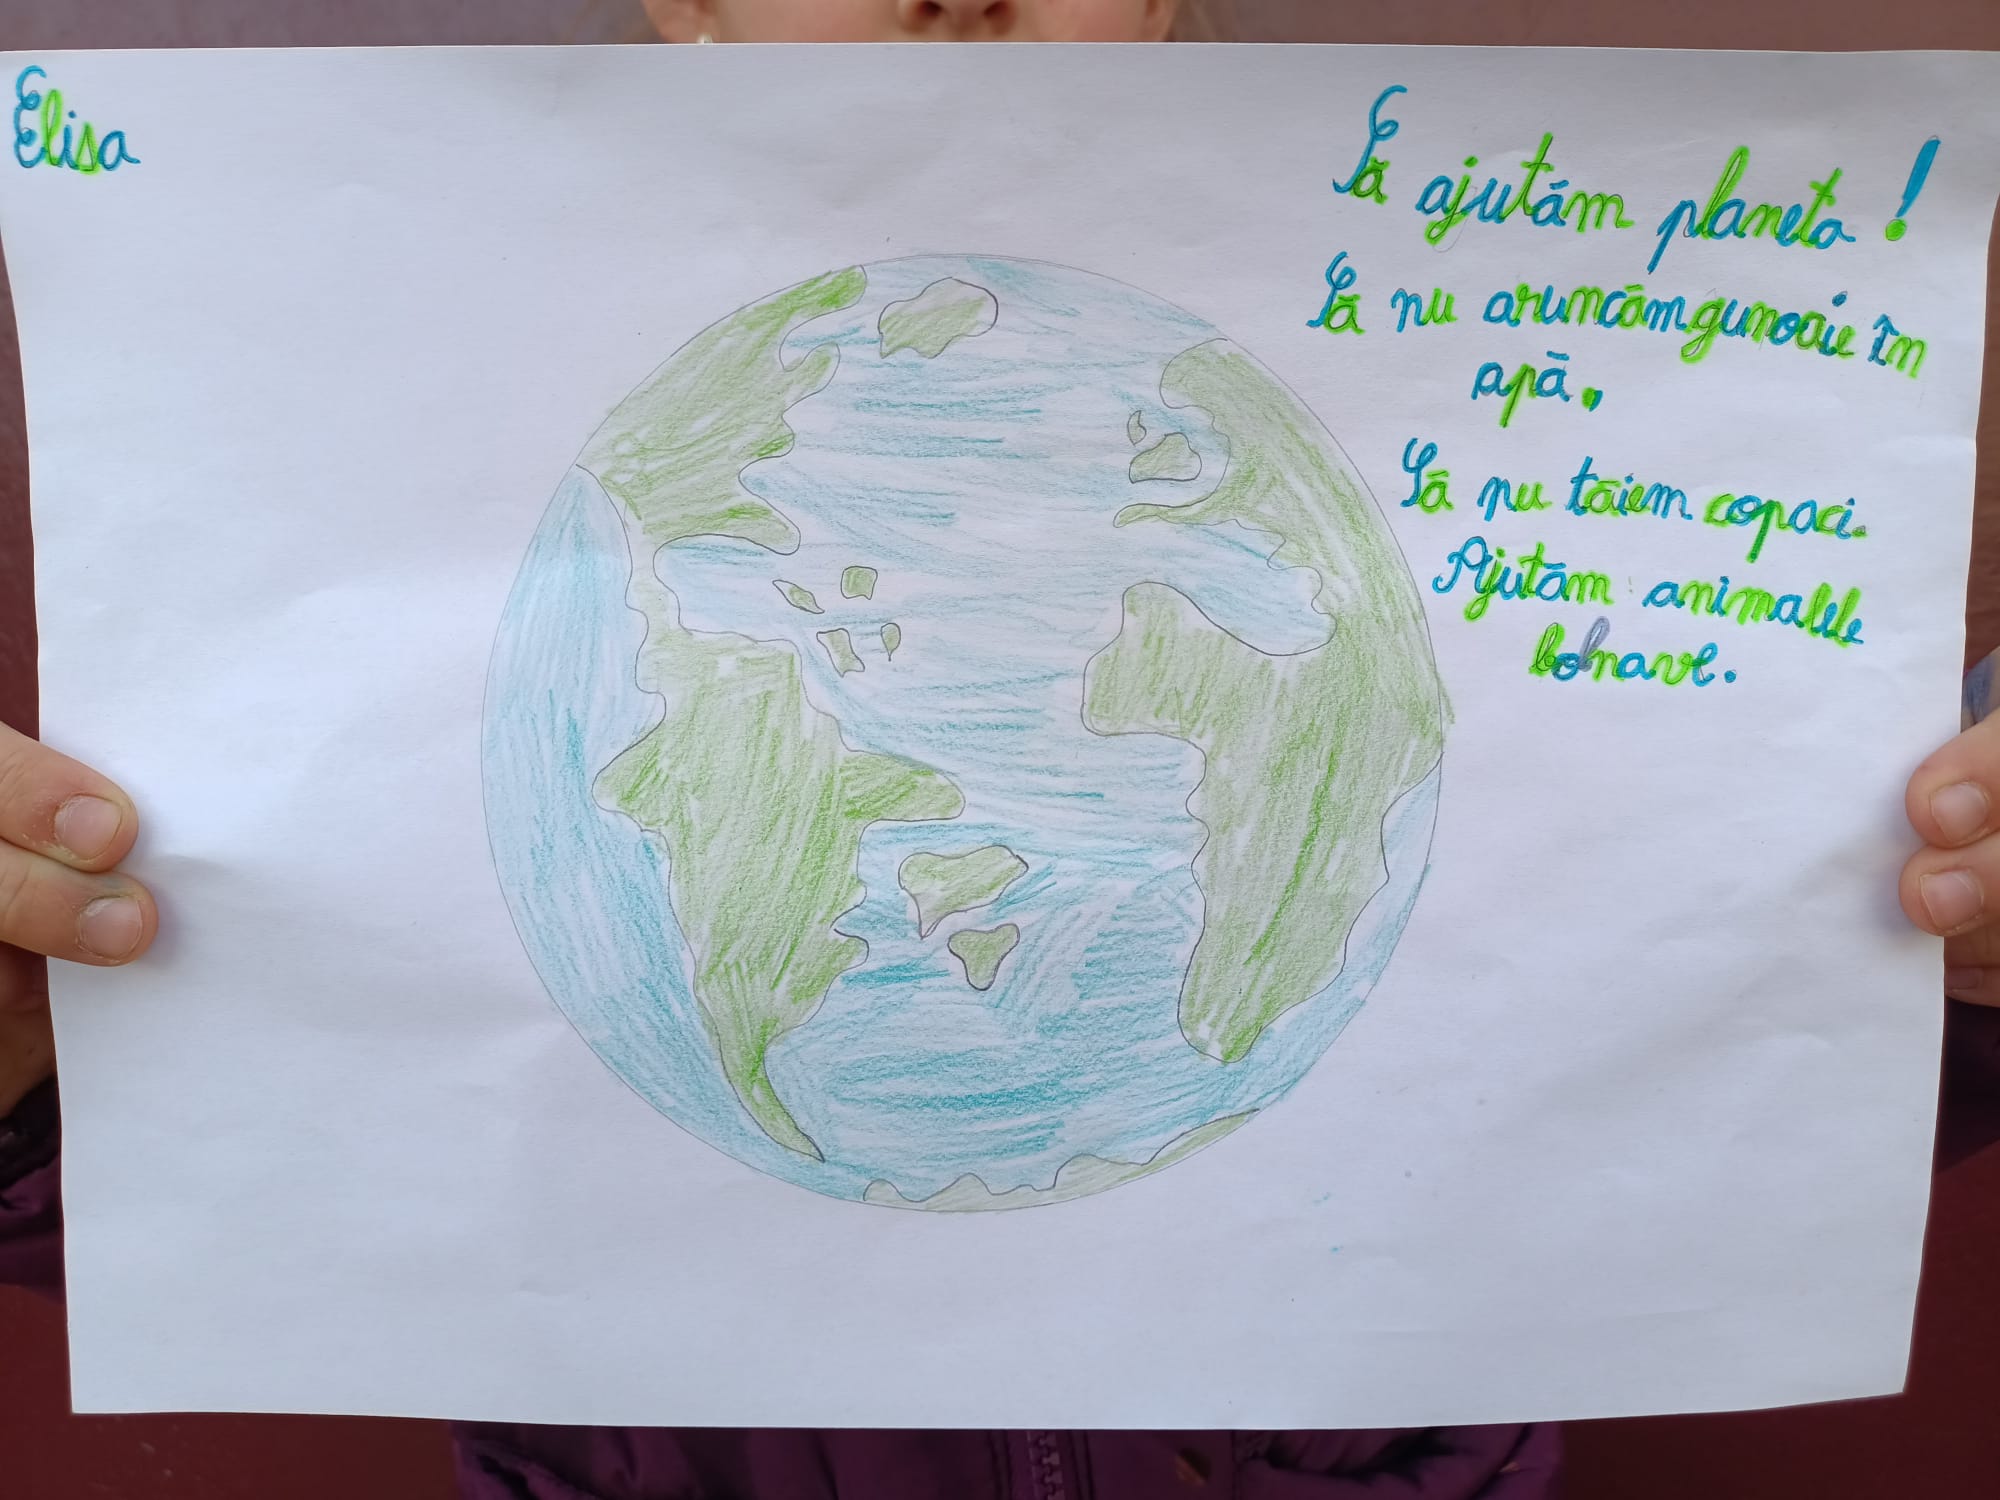 Elisa
Să ajutăm planeta!
Să nu aruncăm gunoaie în
apă.
Să nu tăiem copaci.
Ajutăm animalele
bolnave.